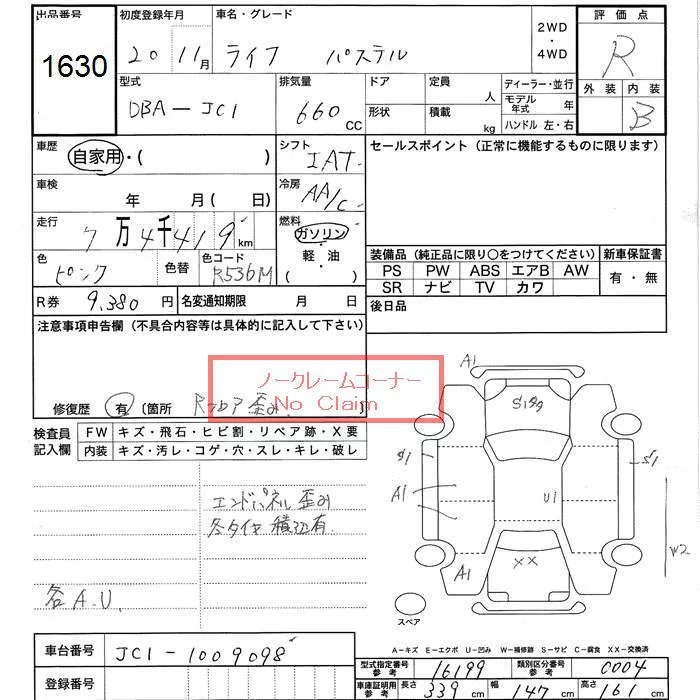 出品番号 初度登録年月 車名・グレード 2WD ・ 4WD 評価点
1630 20 11月 ライフ パステル R
型式 排気量 ドア 定員 人 ディーラー・並行 外装 内装
DBA－JC1 660 CC 形状 積載 kg モデル年式 年 B
ハンドル 左・右
車歴 自家用・( ) シフト IAT セールスポイント（正常に機能するものに限ります）
車検 年 月( 日) 冷房 AA/C
走行 7万4千419km 燃料 ガソリン・軽・油 ( )
装備品（純正品に限り○をつけてください） 新車保証書
色 ピンク 色替 色コード R536M PS PW ABS エアB AW 有・無
SR ナビ TV カワ
R券 9,380円 名変通知期限 月 日 後日品
注意事項申告欄（不具合内容等は具体的に記入して下さい）
ノークレームコーナー
No Claim
修復歴 有 〔箇所 歪み 〕
検査員記入欄 FW キズ・飛石・ヒビ割・リペア跡・X要
内装 キズ・汚レ・コゲ・穴・スレ・キレ・破レ
エンドパネル歪み
各タイヤ 積込有
各A.U.
A1
S1
S1
A1
U1
W2
XX
A1
スペア
A－キズ E－エクボ U－凹み W－補修跡 S－サビ C－腐食 XX－交換済
車台番号 JC1－1009098 型式指定番号 参考 16199 類別区分番号 参考 0004
登録番号 車庫証明用 参考 長さ 339 cm 幅 147 cm 高さ 161 cm